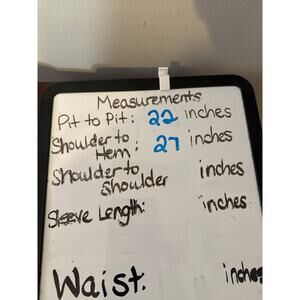 Measurements
Pit to Pit: 22 inches
Shoulder to
Hem: 27 inches
Shoulder to
Shoulder inches
Sleeve Length: inches
Waist: inches